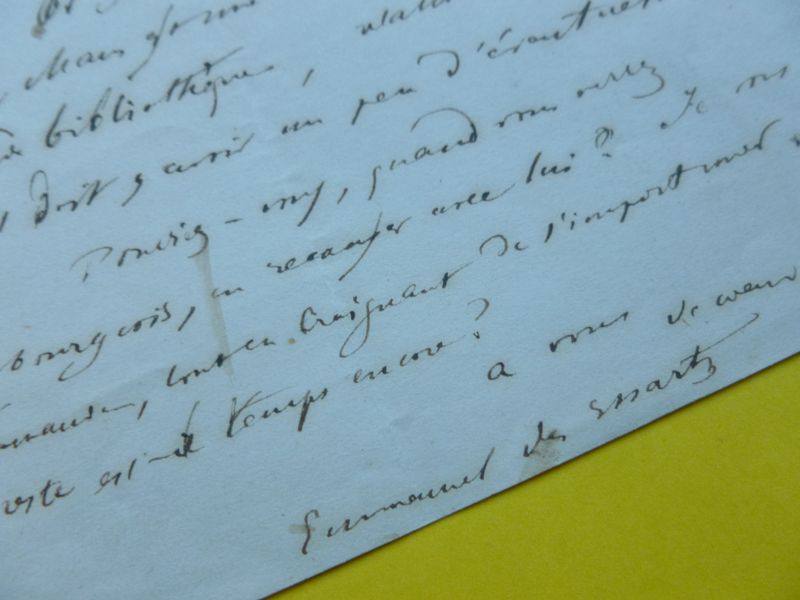 Mais
bibliothèque,
doit y avoir un peu d'
Pouviez-vous, quand vous verrez
bourgeois, en recauser avec lui? Je
tout en craignant de l'importuner
reste est-il temps encore?
a vous de coeur
Emmanuel des Essarts